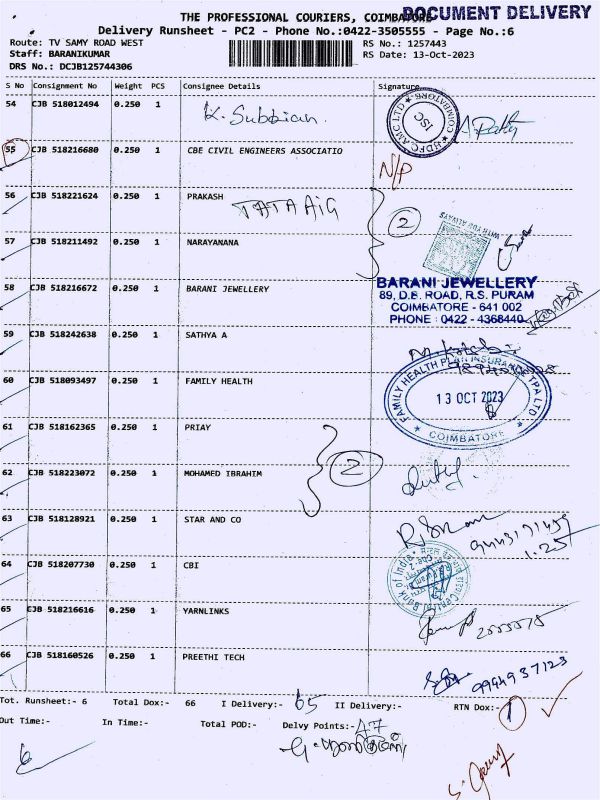 THE PROFESSIONAL COURIERS, COIMBATORE
DOCUMENT DELIVERY
Delivery Runsheet - PC2 - Phone No.:0422-3505555 - Page No.:6
Route: TV SAMY ROAD WEST
RS No.: 1257443
Staff: BARANIKUMAR
RS Date: 13-Oct-2023
DRS No.: DCJB125744306
S No Consignment No Weight PCS Consignee Details Signature
54 CJB 518012494 0.250 1 K. Subbian.
HDFC AMC LTD COIMBATORE ISC
55 CJB 518216680 0.250 1 CBE CIVIL ENGINEERS ASSOCIATIO N/P
56 CJB 518221624 0.250 1 PRAKASH
TATA AIG 2
WITH YOU ALWAYS
57 CJB 518211492 0.250 1 NARAYANANA
58 CJB 518216672 0.250 1 BARANI JEWELLERY
BARANI JEWELLERY
89, D.B. ROAD, R.S. PURAM
COIMBATORE - 641 002
PHONE : 0422 - 4368440
59 CJB 518242638 0.250 1 SATHYA A
60 CJB 518093497 0.250 1 FAMILY HEALTH
FAMILY HEALTH PLAN INSURANCE TPA LTD
13 OCT 2023
COIMBATORE
61 CJB 518162365 0.250 1 PRIAY
2
62 CJB 518223072 0.250 1 MOHAMED IBRAHIM
63 CJB 518128921 0.250 1 STAR AND CO
1.25
64 CJB 518207730 0.250 1 CBI
Central Bank of India
65 CJB 518216616 0.250 1 YARNLINKS
66 CJB 518160526 0.250 1 PREETHI TECH
9994937123
Tot. Runsheet:- 6 Total Dox:- 66 I Delivery:- 65 II Delivery:- RTN Dox:- 1
Out Time:- In Time:- Total POD:- Delvy Points:- 47